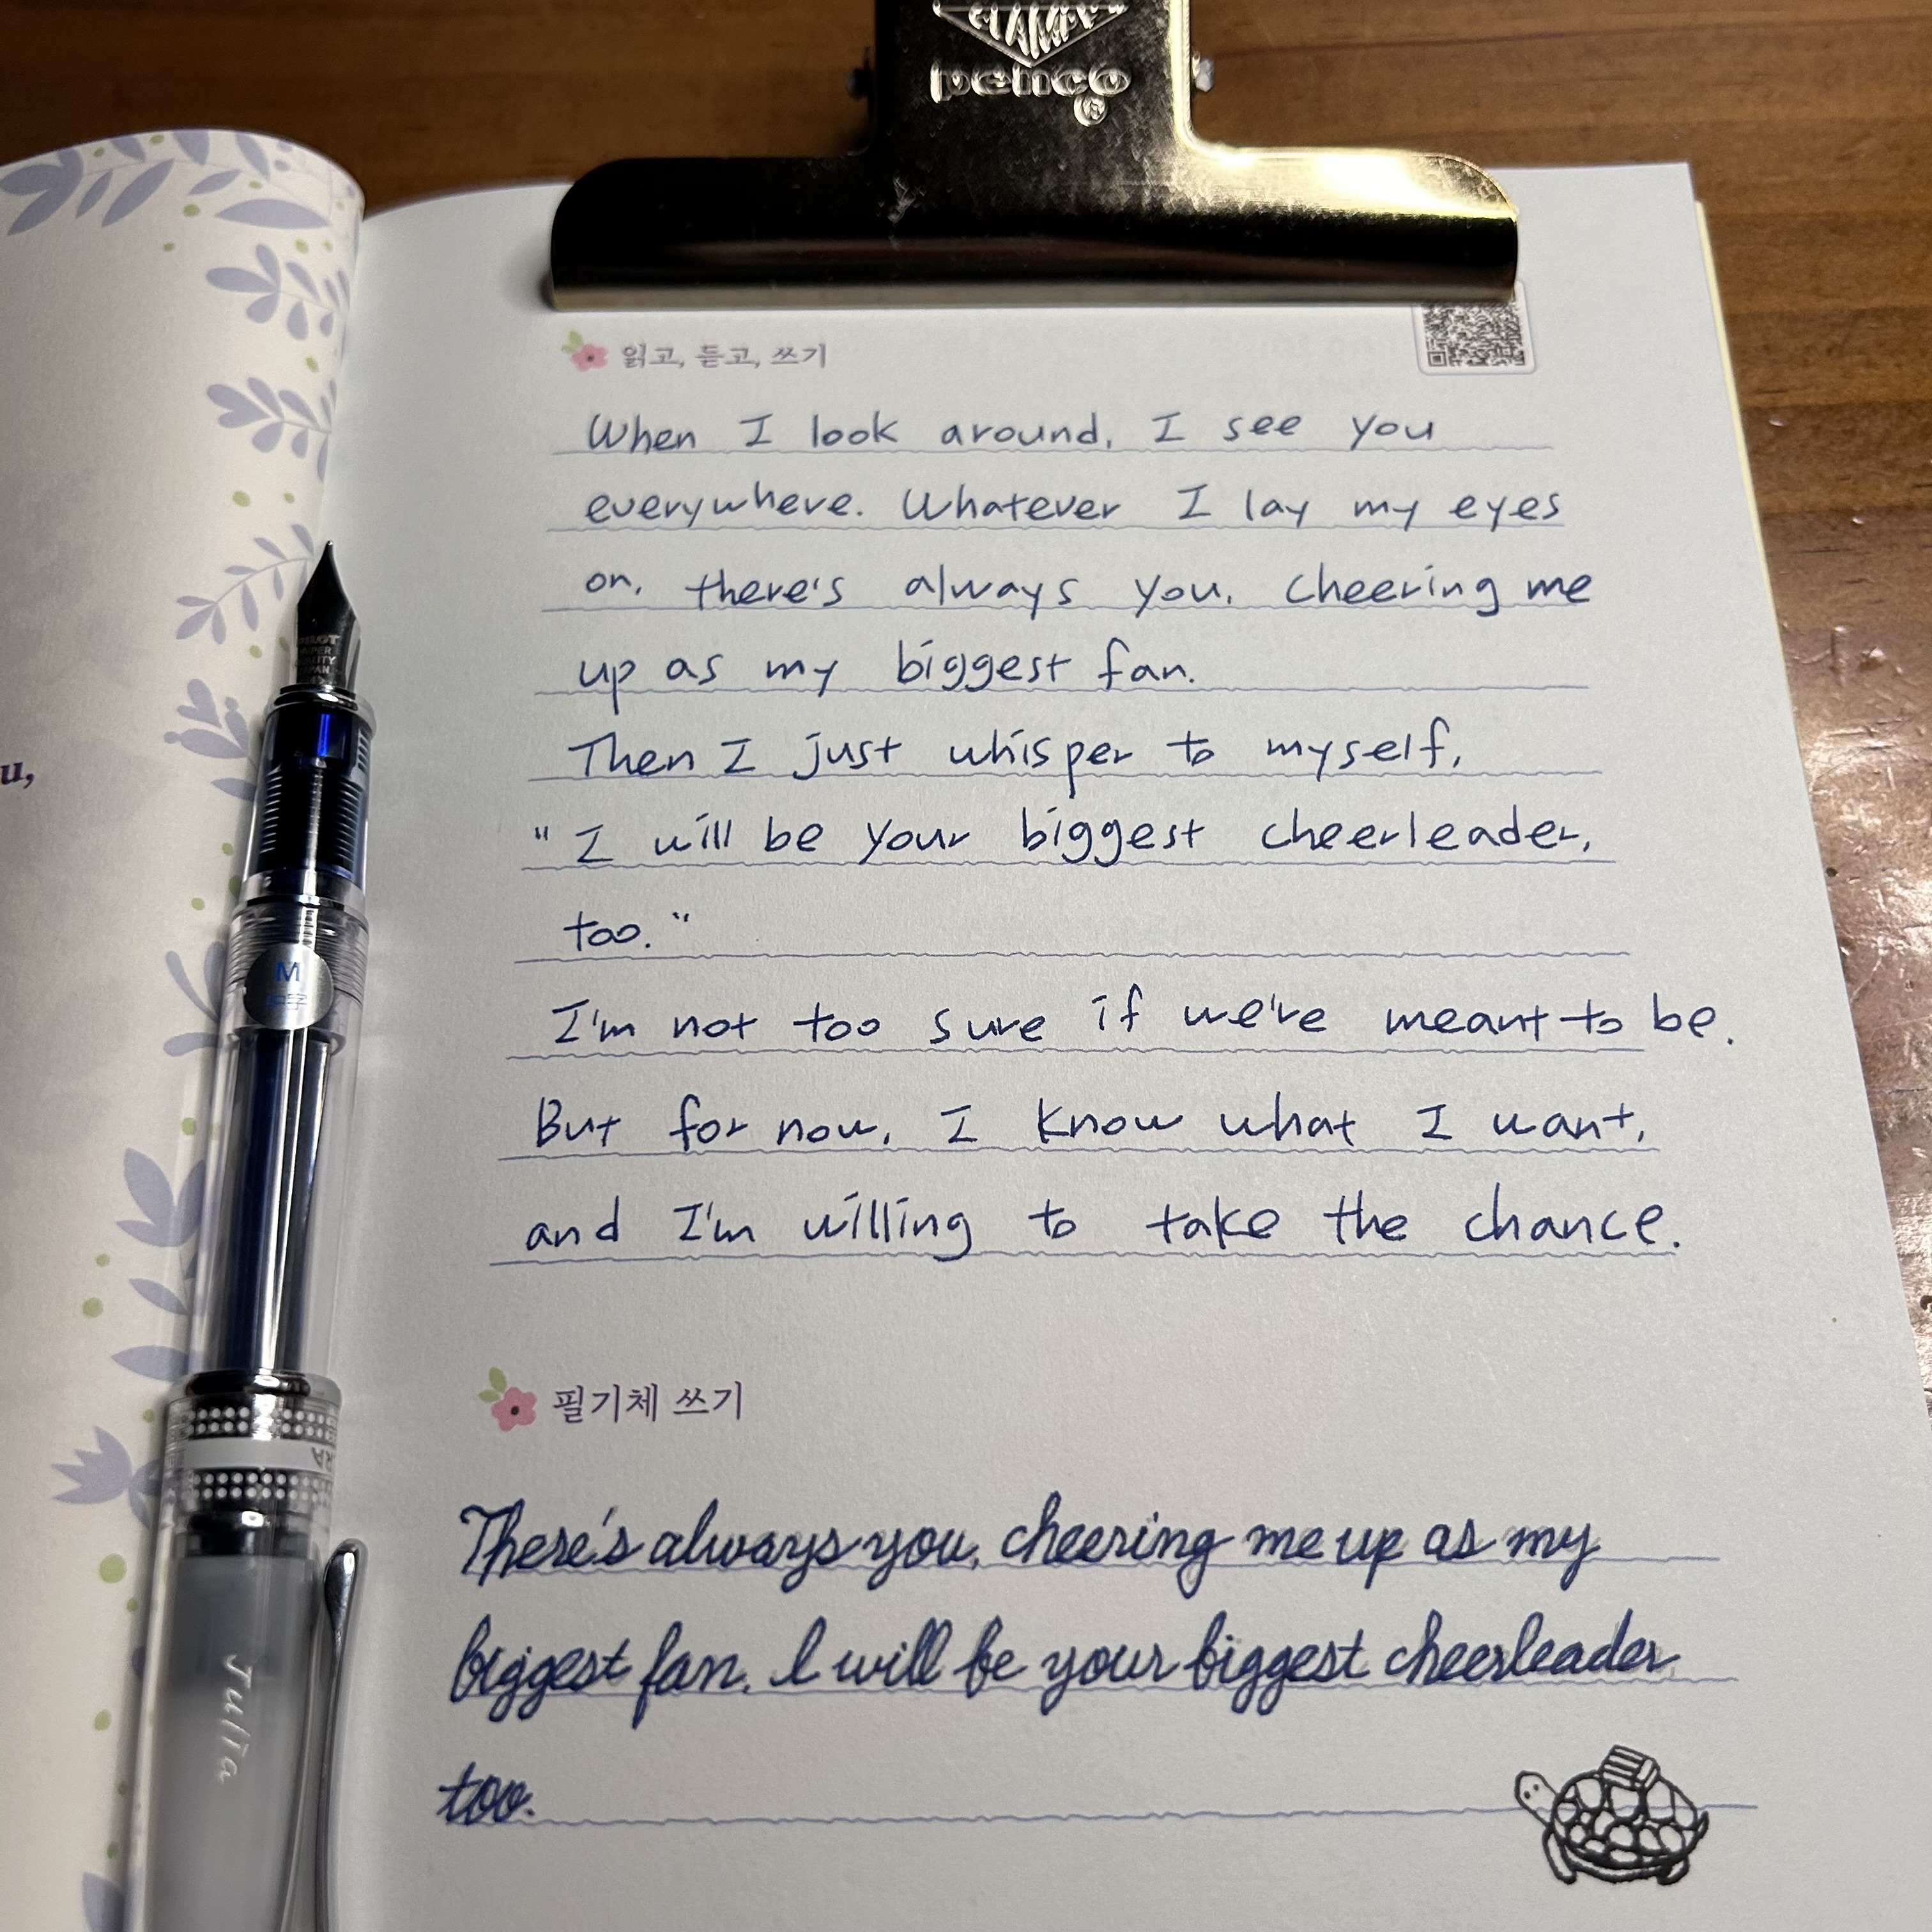 CLAMPY
penco®
읽고, 듣고, 쓰기
When I look around, I see you
everywhere. Whatever I lay my eyes
on, there's always you, cheering me
up as my biggest fan.
Then I just whisper to myself,
"I will be your biggest cheerleader,
too."
I'm not too sure if we're meant to be.
But for now, I know what I want,
and I'm willing to take the chance.
필기체 쓰기
There's always you, cheering me up as my
biggest fan. I will be your biggest cheerleader,
too.
u,
PILOT
SUPER
QUALITY
JAPAN
M
Julia